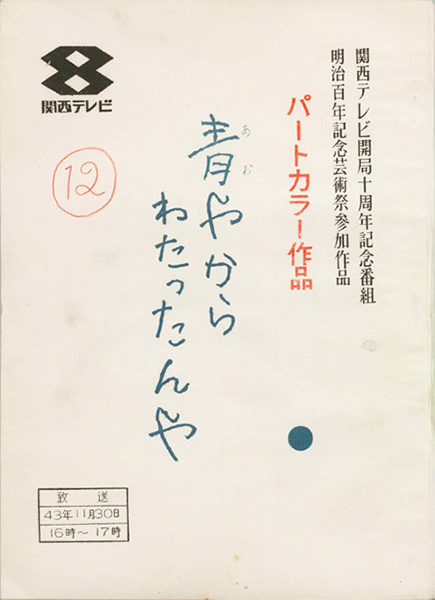 関西テレビ開局十周年記念番組
明治百年記念芸術祭参加作品
パートカラー作品
青やから
あお
わたったんや
12
8
関西テレビ
放送
43年11月30日
16時〜17時